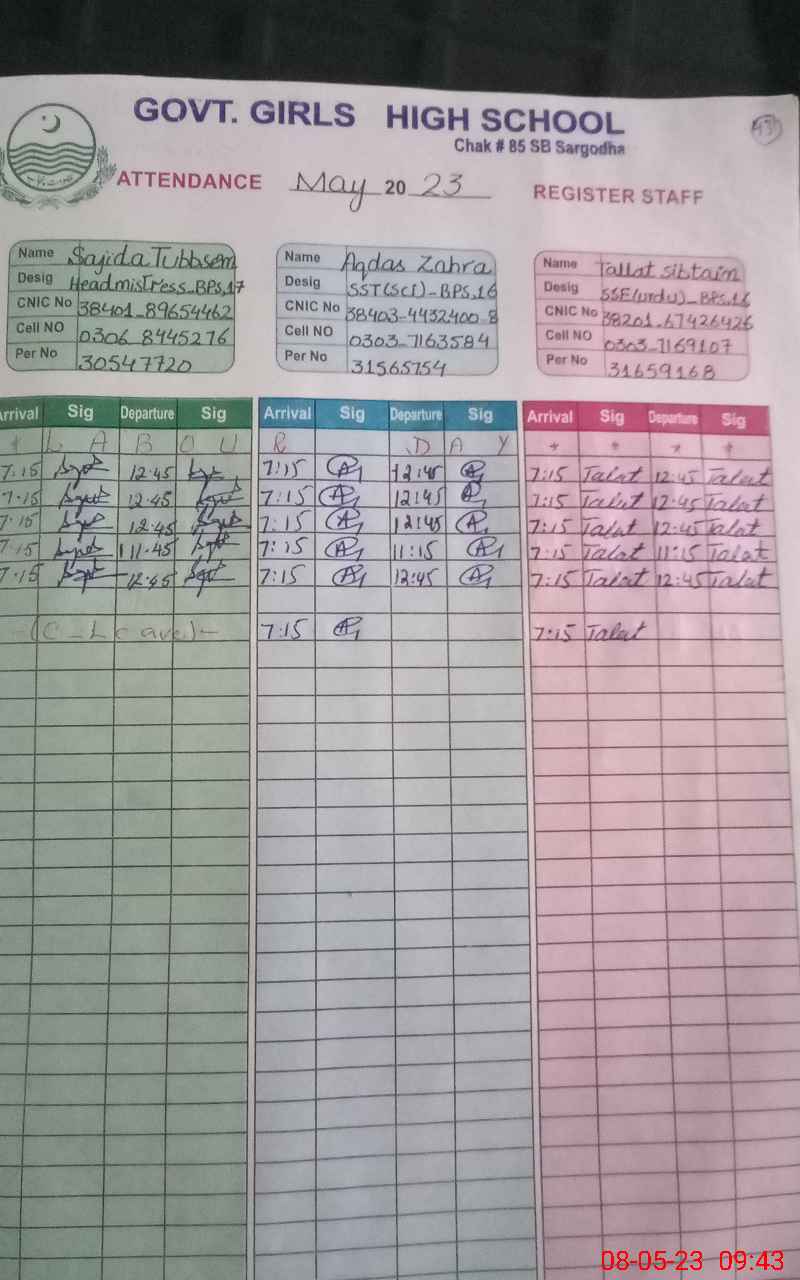 GOVT. GIRLS HIGH SCHOOL
Chak # 85 SB Sargodha
ATTENDANCE May 20 23 REGISTER STAFF
Name Sajida Tubbsem
Desig Headmistress_BPS,17
CNIC No 38401_89654462
Cell NO 0306_8445276
Per No 30547720
Name Aqdas Zahra
Desig SST(SCI)_BPS,16
CNIC No 38403_4432400_8
Cell NO 0303_7163584
Per No 31565754
Name Tallat Sibtain
Desig SSE(urdu)_BPS,16
CNIC No 38201_67426426
Cell NO 0303_7169107
Per No 31659168
Arrival Sig Departure Sig Arrival Sig Departure Sig Arrival Sig Departure Sig
* L A B O U R D A Y * * * *
7:15 12:45 7:15 12:45 7:15 Talat 12:45 Talat
7:15 12:45 7:15 12:45 7:15 Talat 12:45 Talat
7:15 12:45 7:15 12:45 7:15 Talat 12:45 Talat
7:15 11:45 7:15 11:15 7:15 Talat 11:15 Talat
7:15 12:45 7:15 12:45 7:15 Talat 12:45 Talat
-(C-Leave)- 7:15 7:15 Talat
08-05-23 09:43